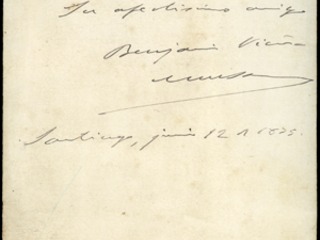 Su afectísimo amigo
Benjamin Vicuña
Mackenna
Santiago, junio 12 de 1875.